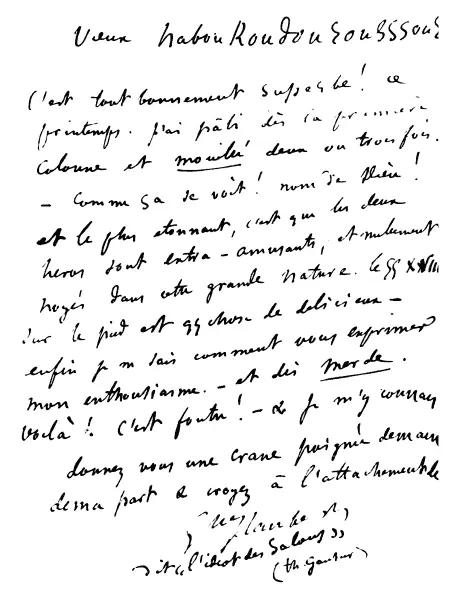 Vieux NabouKoudouSouSSSouS
C'est tout bonnement superbe ! ce
printemps. j'ai pâli dès la première
colonne et mouillé deux ou trois fois.
— Comme ça se voit ! nom de Dieu !
et le plus étonnant, c'est que les deux
héros sont extra-amusants, et nullement
noyés dans cette grande nature. Le § XXVIII
sur le pied est qq chose de délicieux —
enfin je ne sais comment vous exprimer
mon enthousiasme. — et dis merde.
voilà ! C'est foutu ! — & je m'y connais
donnez vous une crane poignée de main
de ma part & croyez à l'attachement de
dit "l'idiot des Salons"
(th. Gautier)